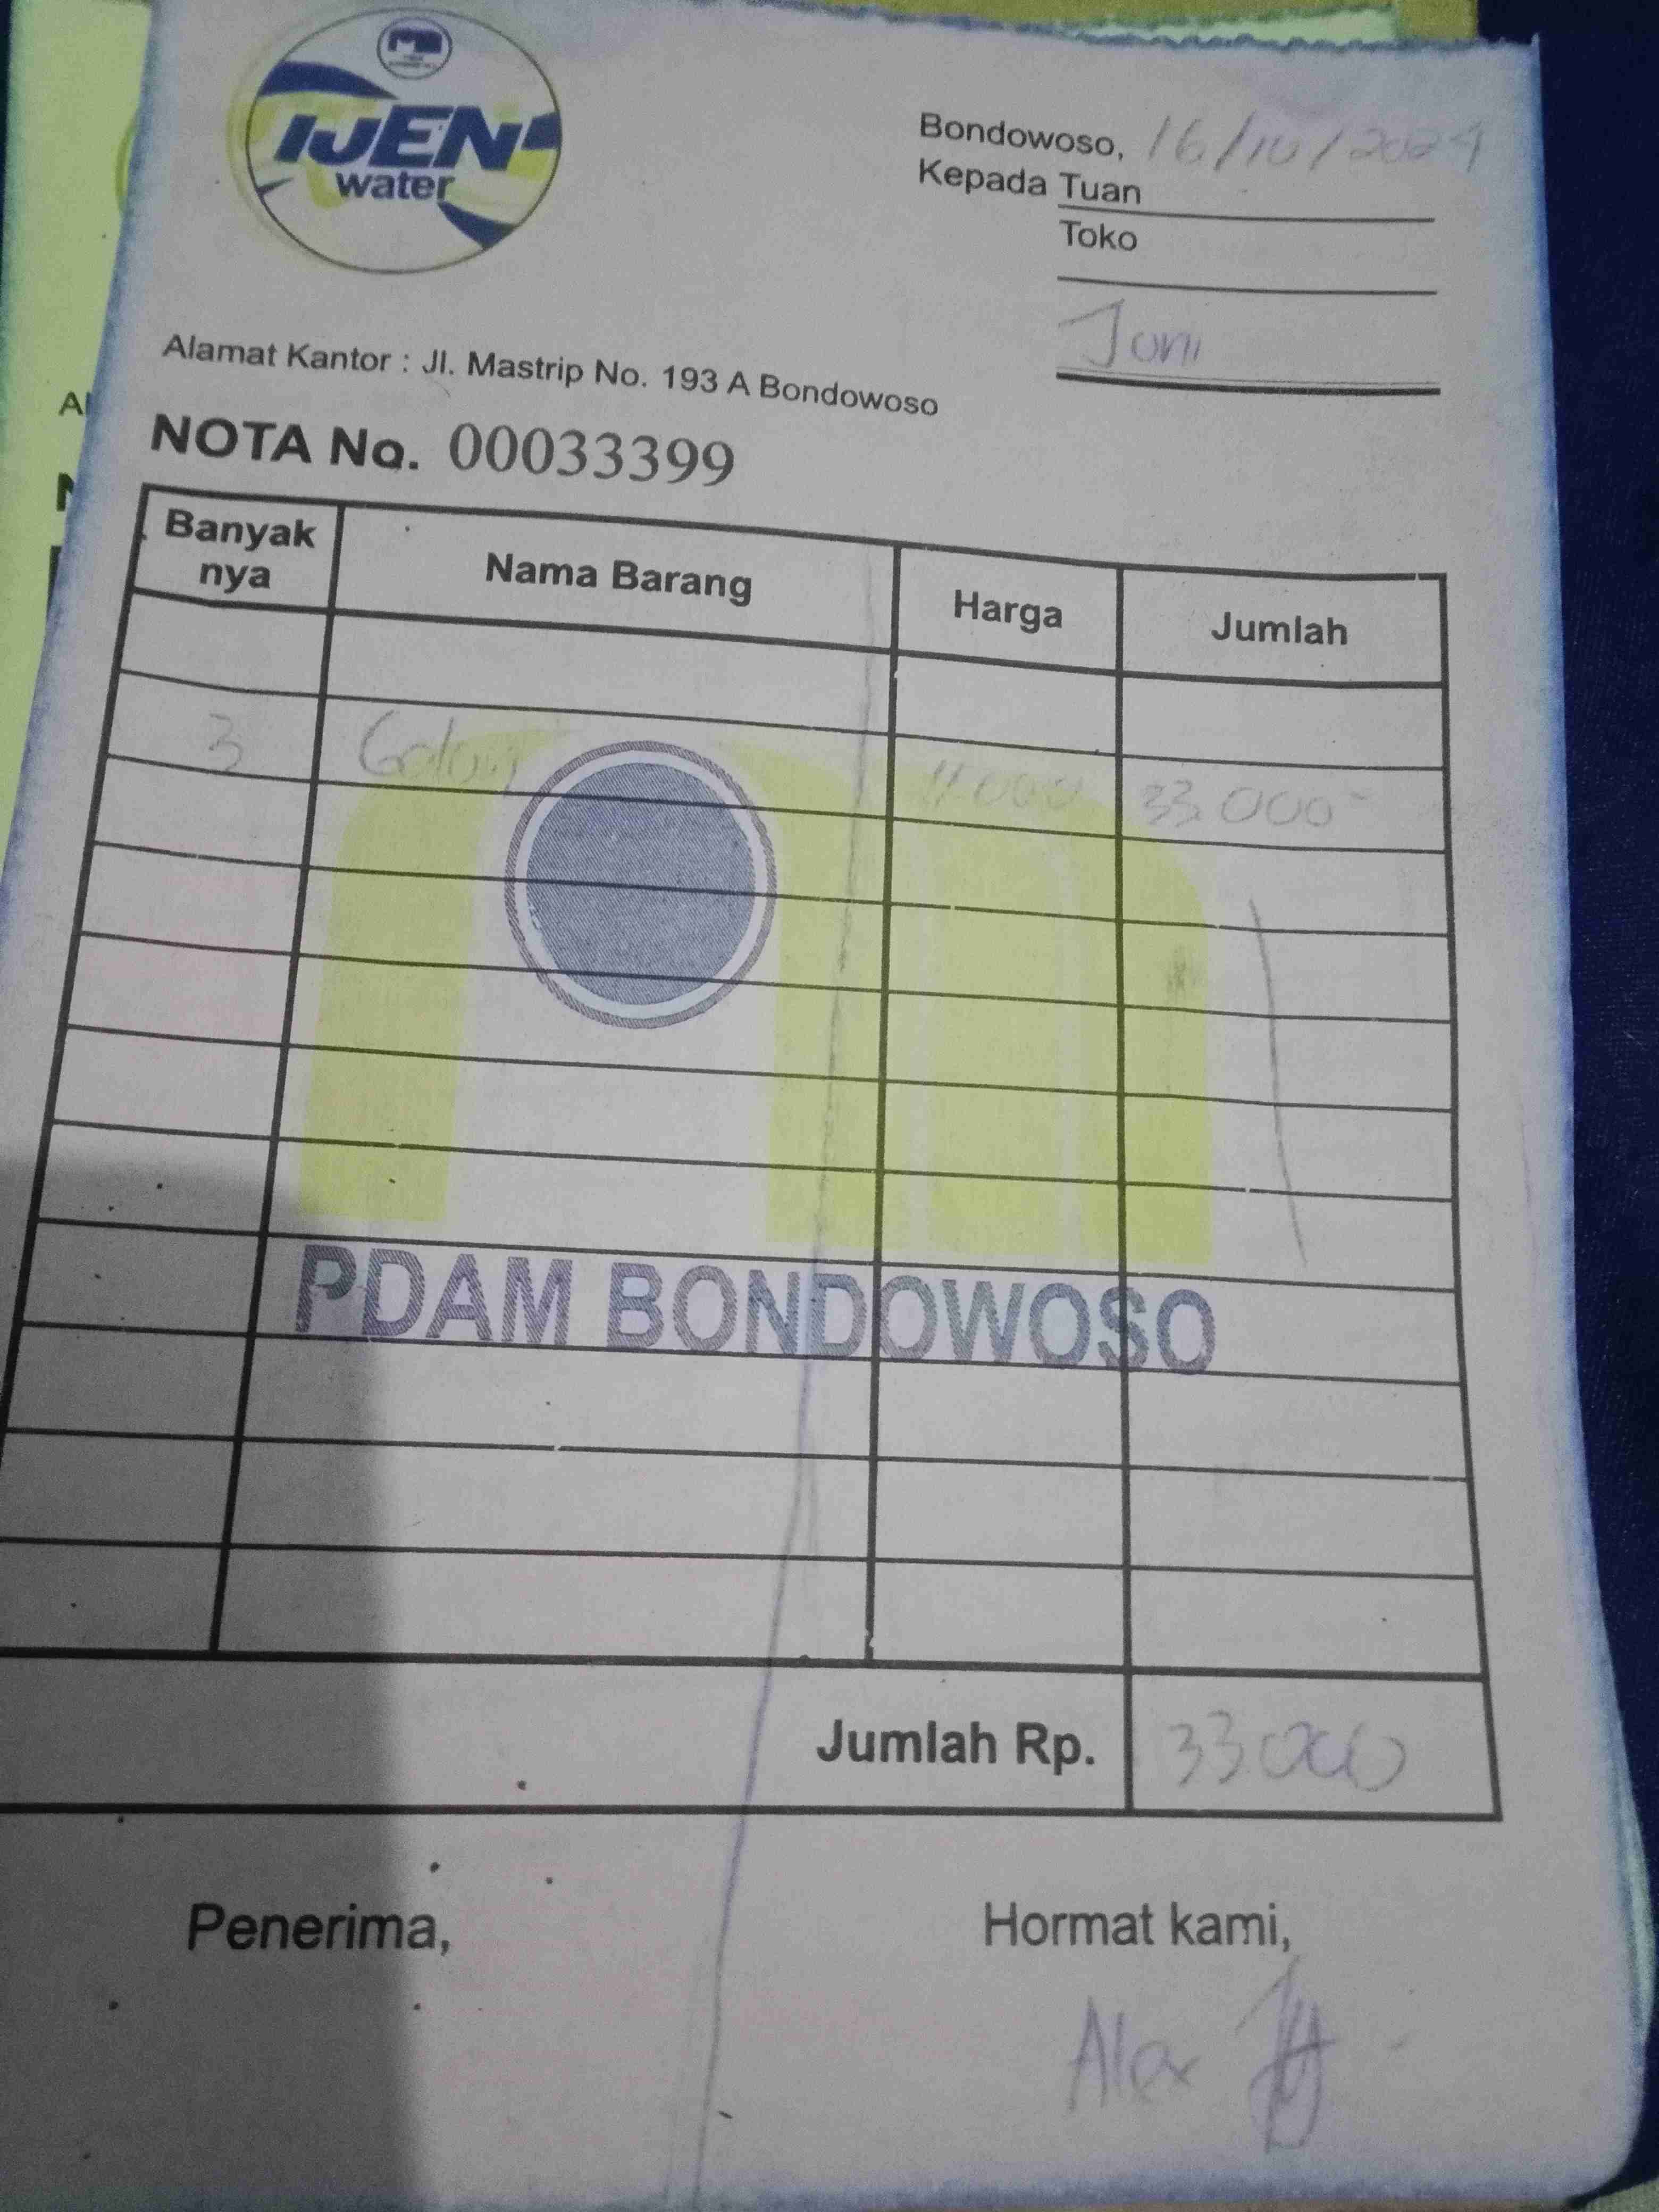 IJEN
water
Bondowoso, 16/10/2024
Kepada Tuan
Toko
Alamat Kantor : Jl. Mastrip No. 193 A Bondowoso
NOTA No. 00033399
Banyak nya Nama Barang Harga Jumlah
3 Galon 11000 33.000
PDAM BONDOWOSO
Jumlah Rp. 33.000
Penerima, Hormat kami,
Alex